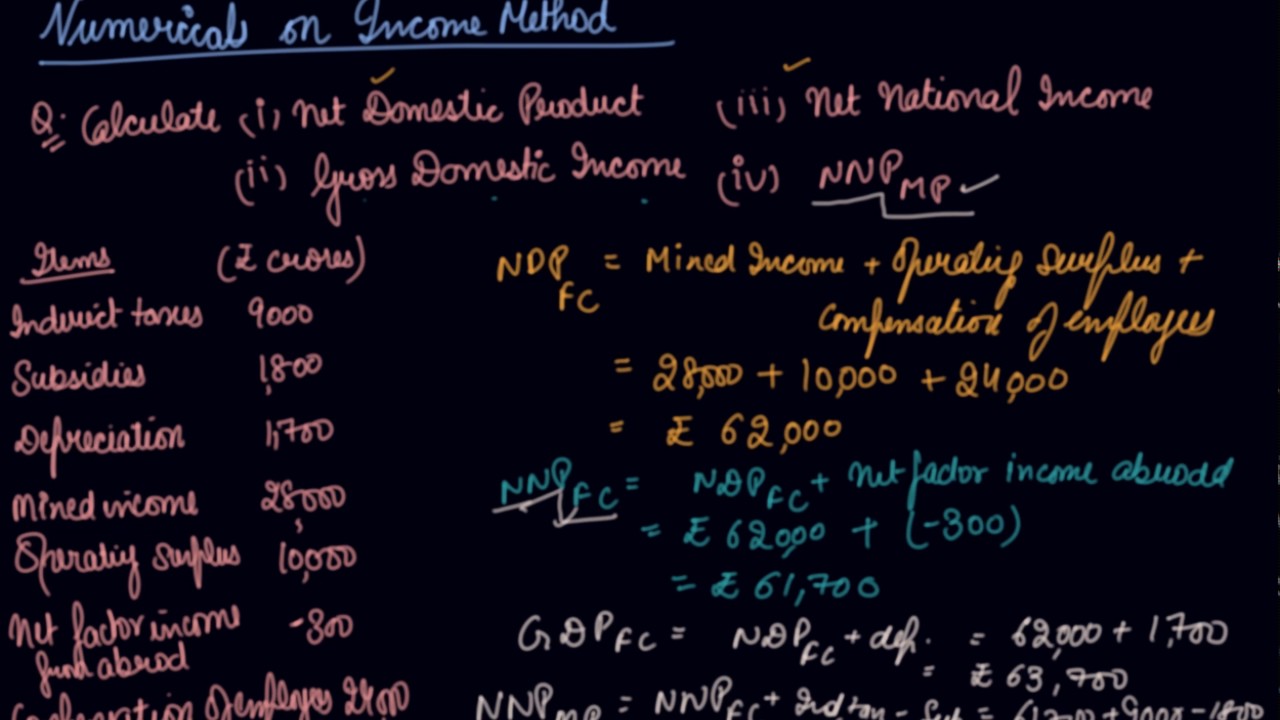 Numericals on Income Method
Q: Calculate (i) Net Domestic Product (iii) Net National Income
(ii) Gross Domestic Income (iv) NNP MP
Items (₹ crores)
Indirect taxes 9000
Subsidies 1,800
Depreciation 1,700
Mixed income 28,000
Operating surplus 10,000
Net factor income -300
from abroad
Compensation of employees 24000
NDP FC = Mixed Income + Operating Surplus +
Compensation of employees
= 28,000 + 10,000 + 24,000
= ₹ 62,000
NNP FC = NDP FC + Net factor income abroad
= ₹ 62000 + (-300)
= ₹ 61,700
GDP FC = NDP FC + dep. = 62,000 + 1,700
= ₹ 63,700
NNP MP = NNP FC + Ind tax - Sub = 61700 + 9000 - 1800